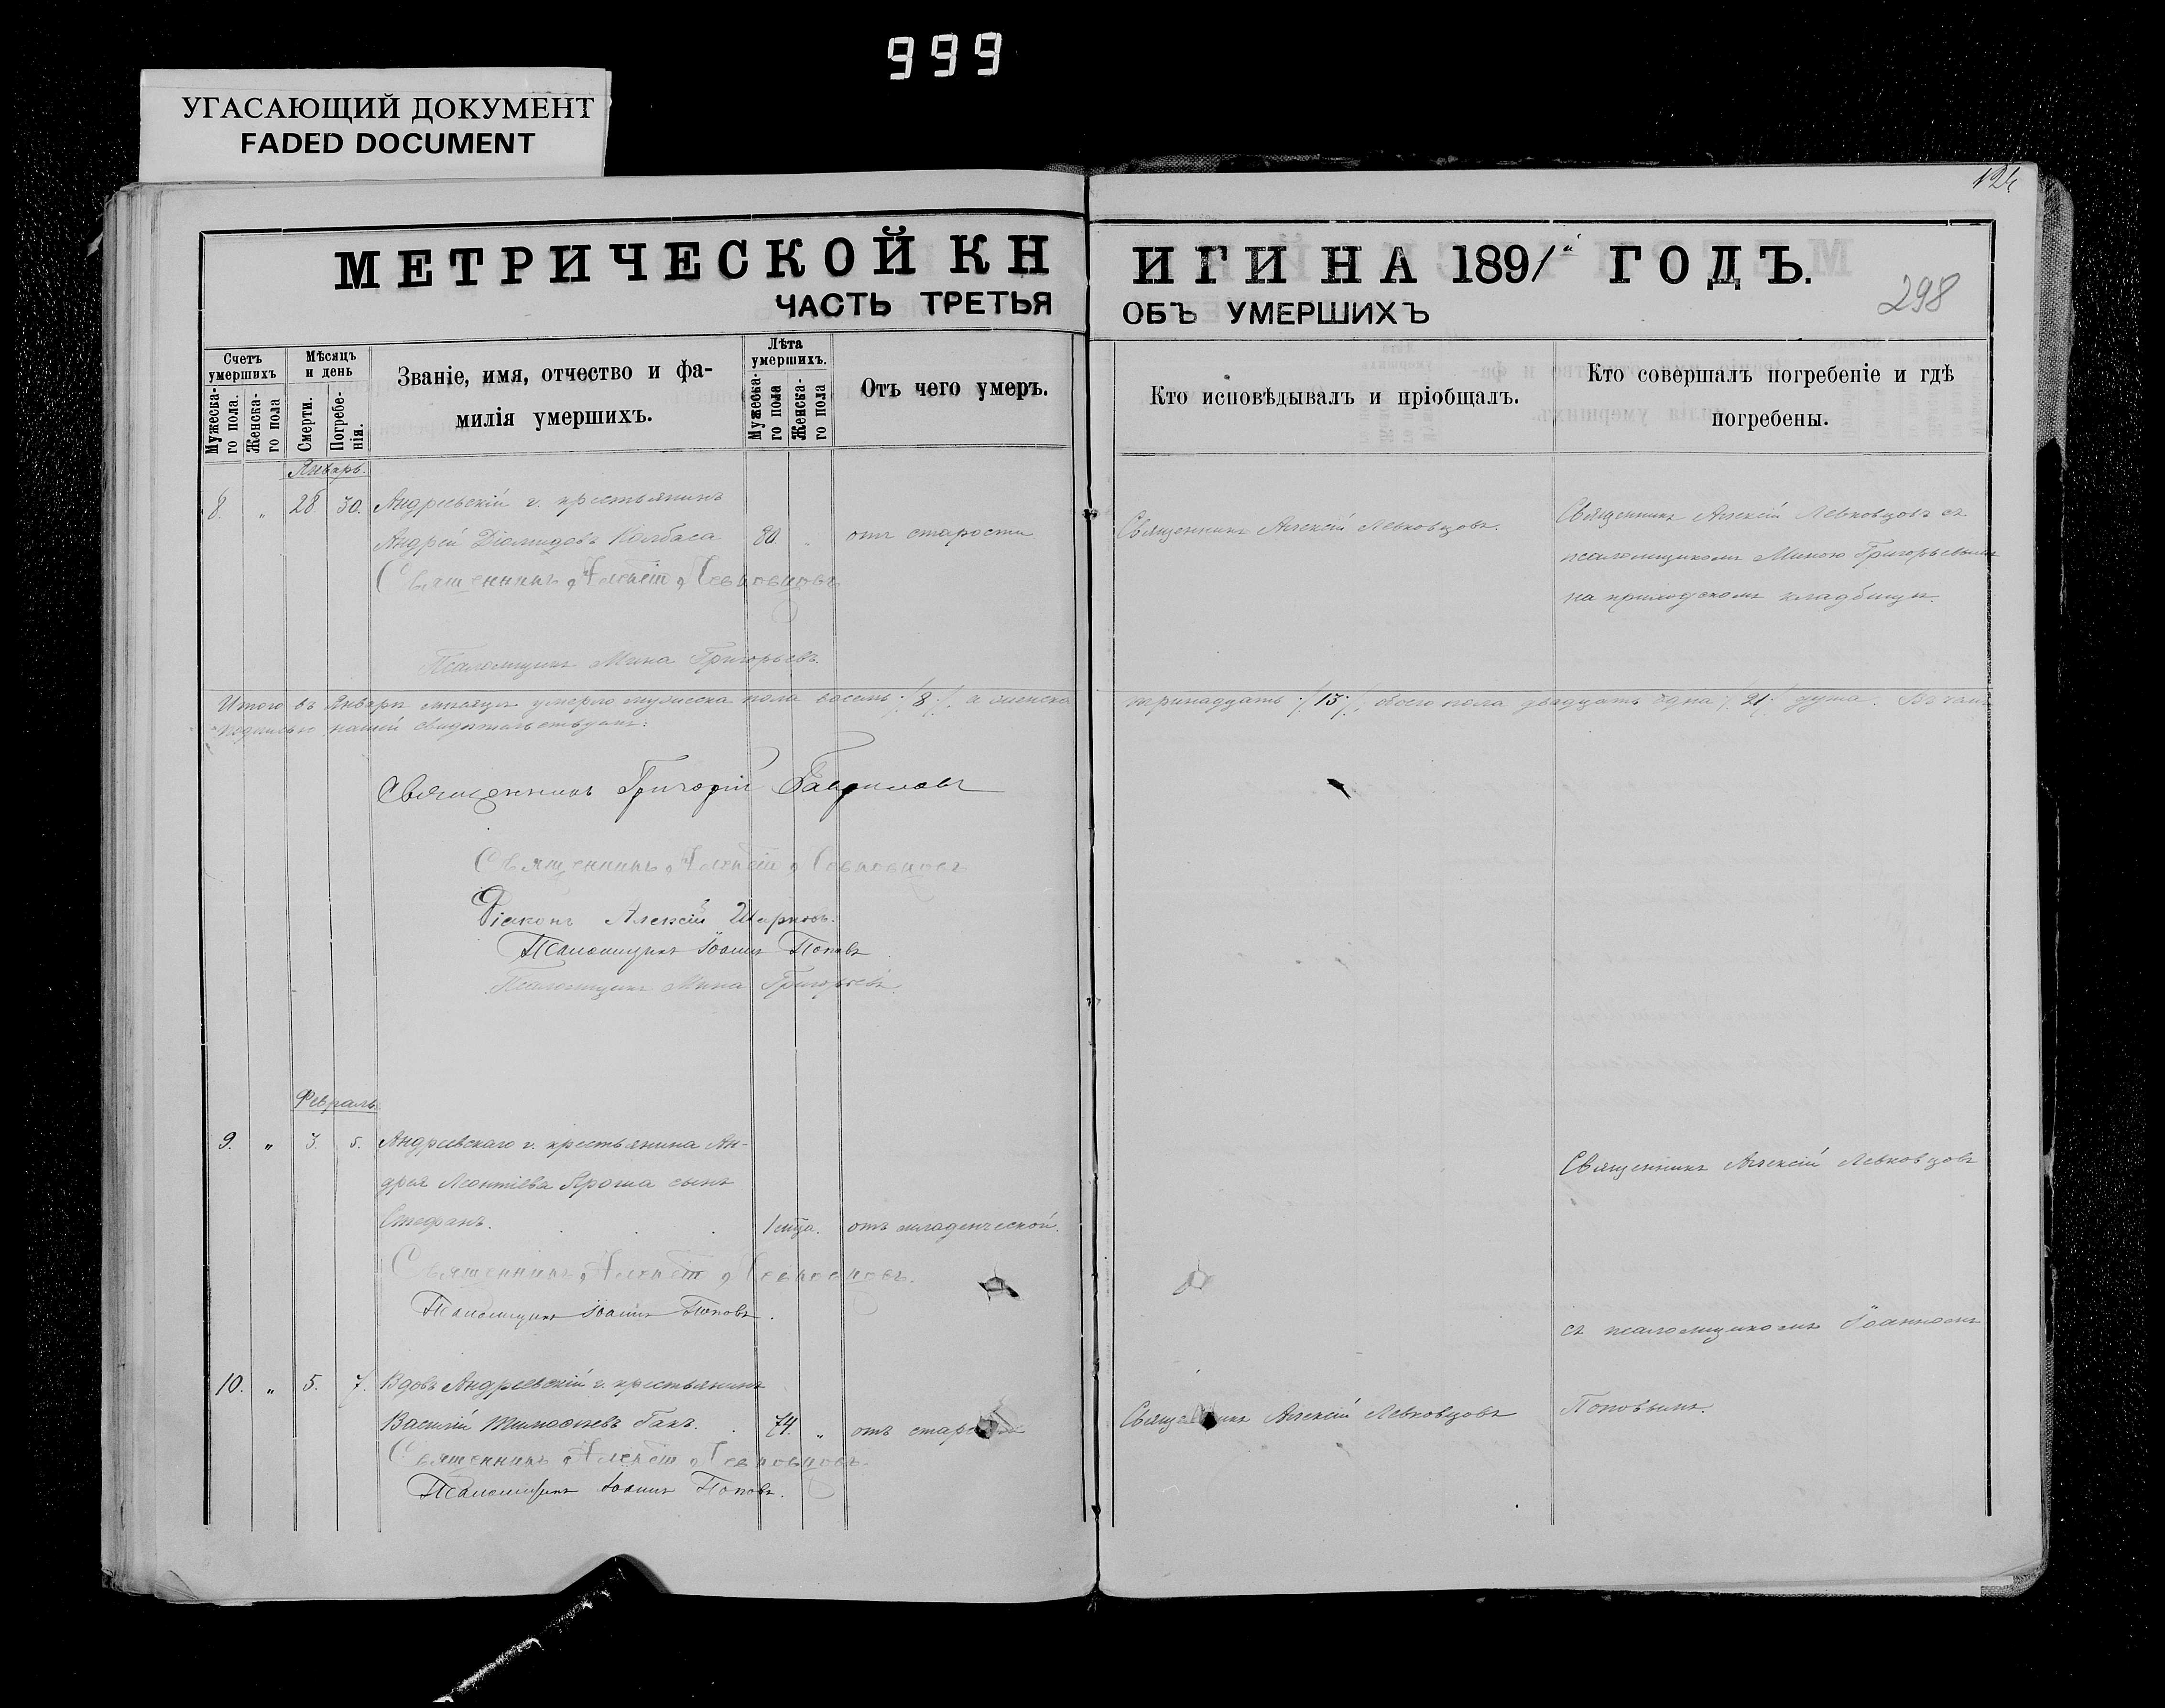 999
УГАСАЮЩИЙ ДОКУМЕНТ
FADED DOCUMENT
124
МЕТРИЧЕСКОЙ КНИГИ НА 1891й ГОДЪ.
298
ЧАСТЬ ТРЕТЬЯ ОБЪ УМЕРШИХЪ
Счетъ умершихъ
Мужеска-го пола.
Женска-го пола
Мѣсяцъ и день
Смерти.
Погребе-нія.
Званіе, имя, отчество и фа-
милія умершихъ.
Лѣта умершихъ.
Мужеска-го пола
Женска-го пола
Отъ чего умеръ.
Кто исповѣдывалъ и пріобщалъ.
Кто совершалъ погребеніе и гдѣ
погребены.
Январь.
8. " 28. 30. Андреевскій г. крестьянинъ
Андрей Діомидовъ Колбаса 80. " отъ старости
Священникъ Алексій Левковцовъ.
Священникъ Алексій Левковцовъ съ
псаломщикомъ Миною Григорьевымъ
на приходскомъ кладбищѣ.
Священникъ Алексій Левковцовъ
Псаломщикъ Мина Григорьевъ.
Итого въ Январѣ мѣсяцѣ умерло мужеска пола восемь ./8./. а женска тринадцать ./13./. обоего пола двадцать одна ./21./ душа. Въ чемъ
подписью нашей свидѣтельствуемъ:
Священникъ Григорій Гавриловъ
Священникъ Алексій Левковцовъ
Діаконъ Алексій
Псаломщикъ Іоаннъ Поповъ
Псаломщикъ Мина Григорьевъ.
Февраль
9. " 3. 5. Андреевскаго г. крестьянина Ан-
дрея Леонтіева Яроша сынъ
Стефанъ. 1 мца. отъ младенческой.
Священникъ Алексій Левковцовъ
Священникъ Алексій Левковцовъ.
Псаломщикъ Іоаннъ Поповъ.
съ псаломщикомъ Іоанномъ
10. " 5. 7. Вдовъ Андреевскій г. крестьянинъ
Василій Тимофеевъ Гакъ. 74. " отъ старости
Священникъ Алексій Левковцовъ
Поповымъ.
Священникъ Алексій Левковцовъ.
Псаломщикъ Іоаннъ Поповъ.